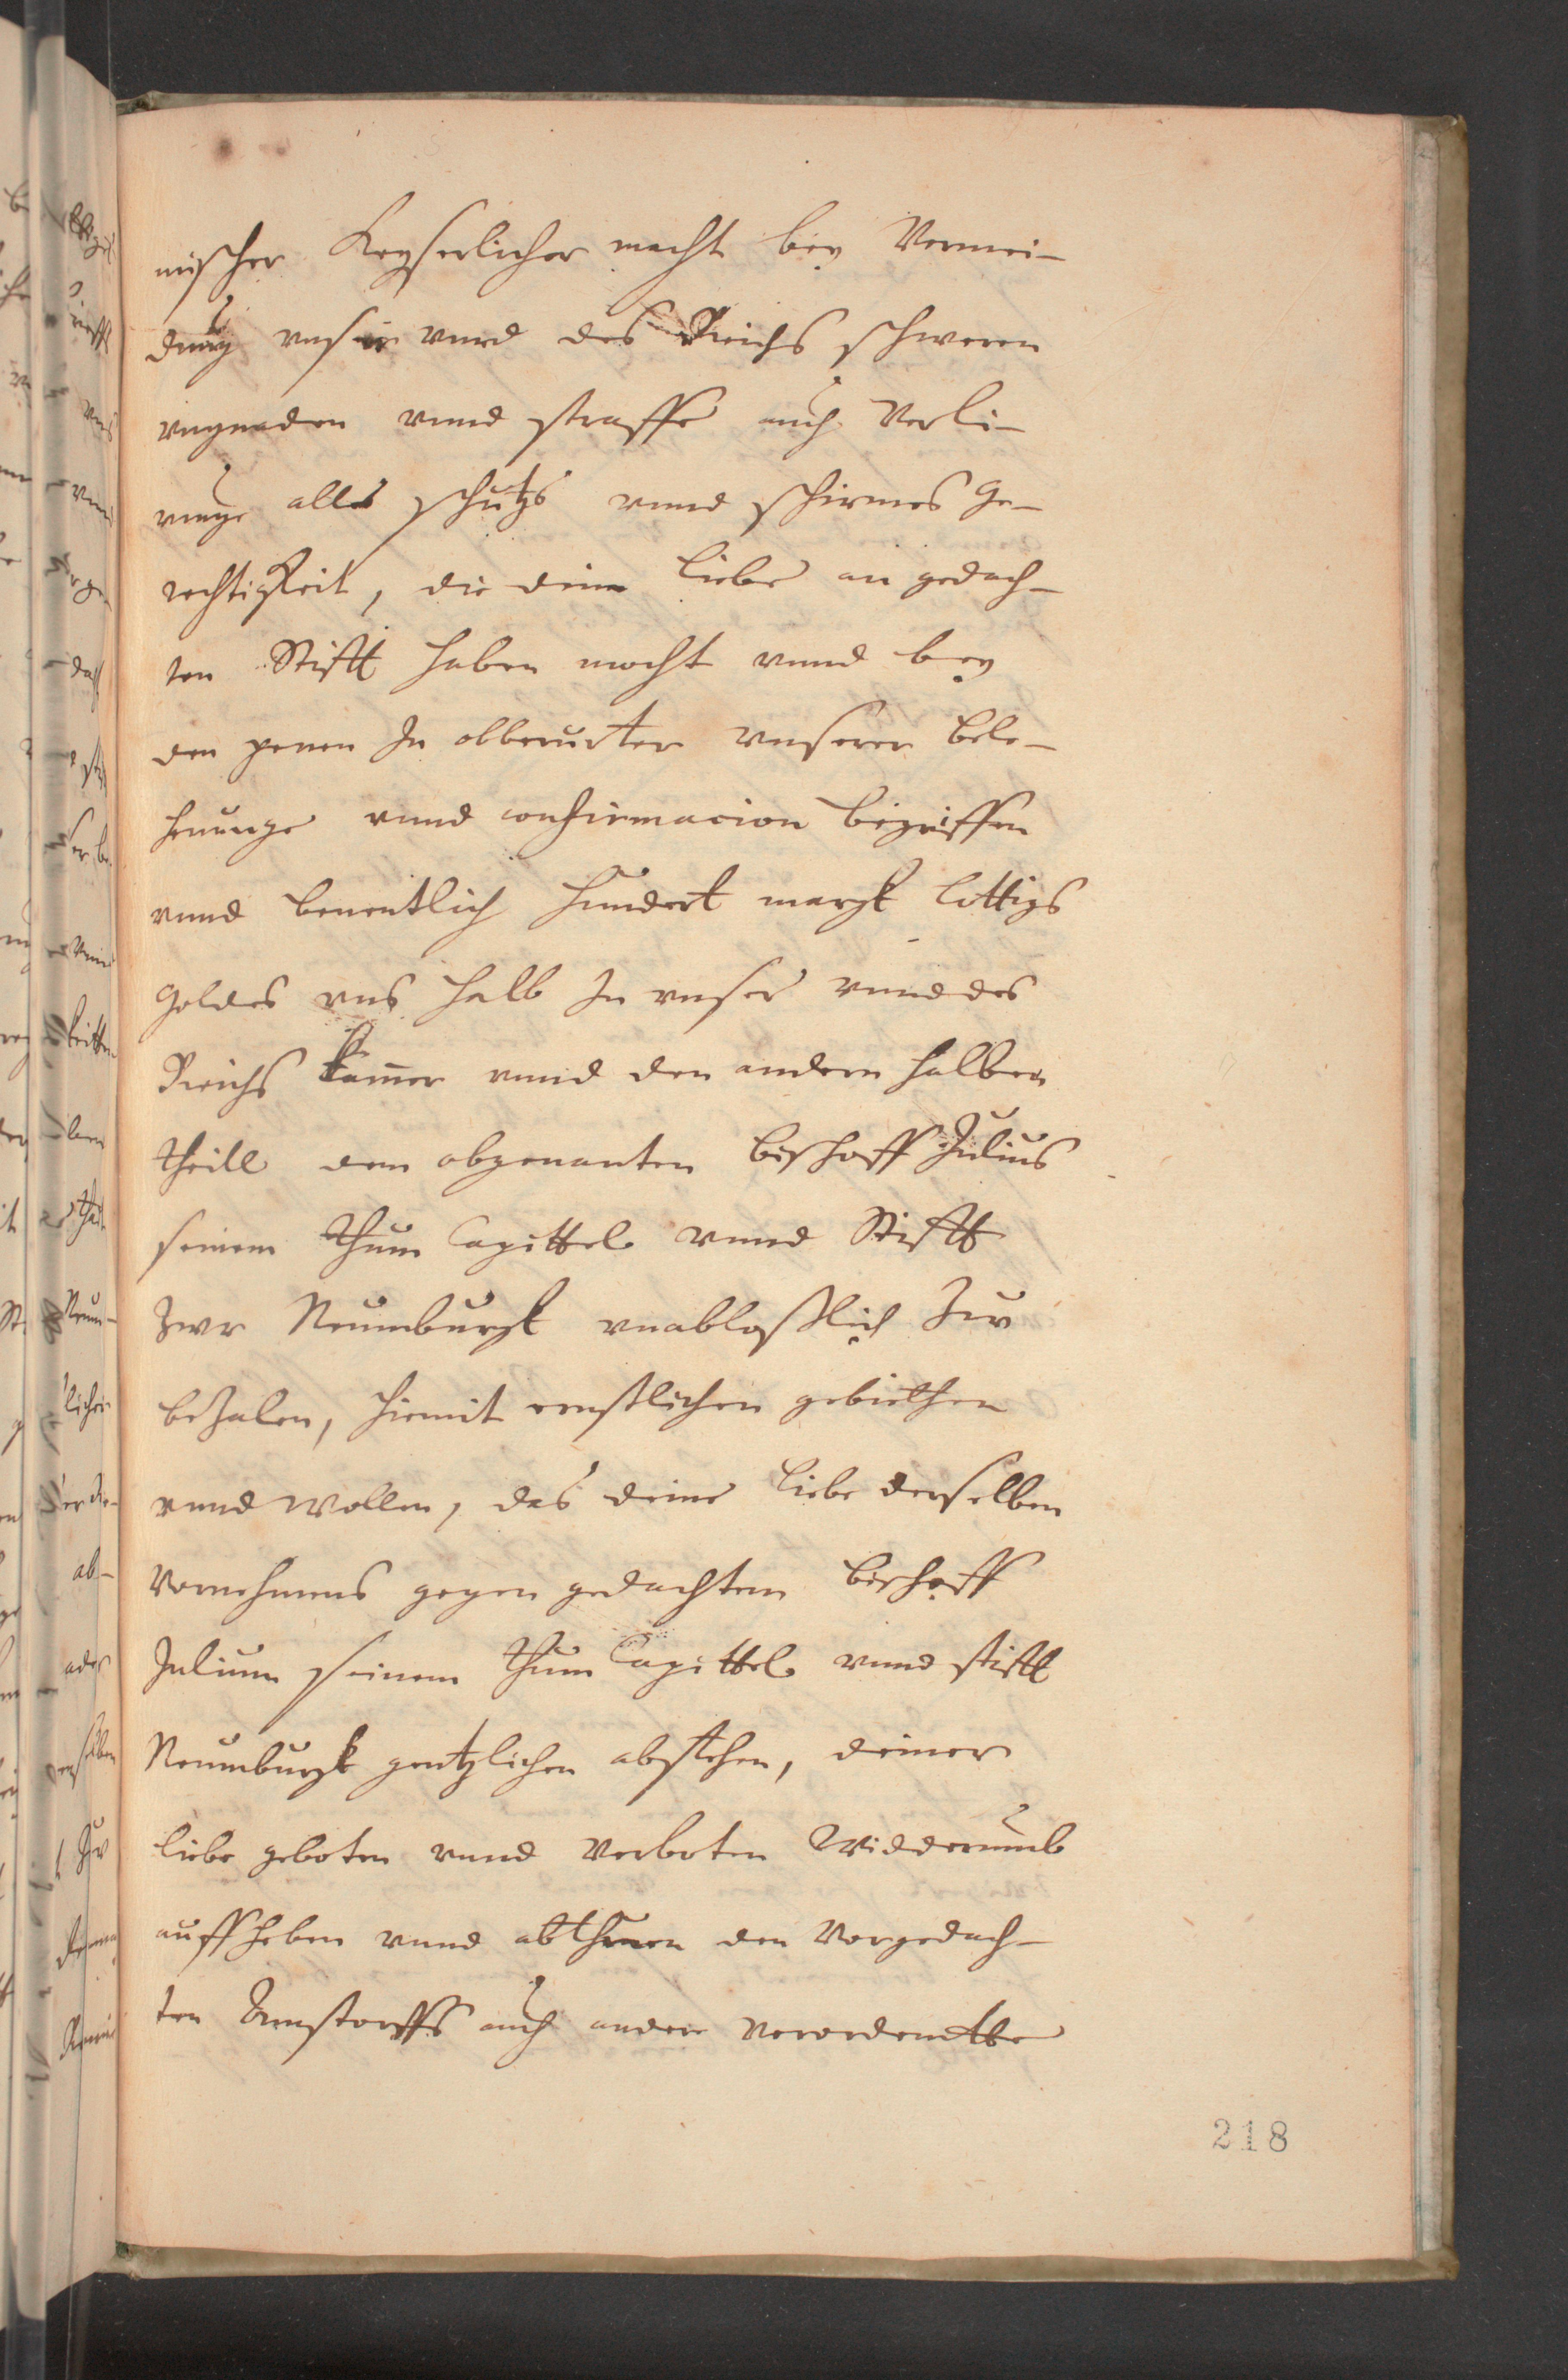 mischer Keyserlicher macht bey Vermei-
dung vnser vnnd des Reichs schweren
vngnaden vnnd straffe auch Verli-
runge alles schutzs vnnd schirmes Ge-
rechtigkeit, die deine Liebe an gedach-
ten Stifft haben mocht vnnd bey
den penen In obberurter vnserer bele-
hnunge vnnd confirmacion begriffen
vnnd benentlich hundert margk lottigs
Goldes vns halb In vnser vnnd des
Reichs kamer vnnd den andern halben
theill dem obgenanten Bischoff Julius
seinem Thum Capittel vnnd Stifft
Zwr Neumburgk vnabloßlich Zw
bezalen, hiemit ernstlichen gebiethen
vnnd wollen, das deine Liebe desselben
Vornehmens gegen gedachtem Bischoff
Julium seinem Thum Capittel vnnd stifft
Neumburgk gentzlichen abstehen, deiner
liebe geboten vnnd verboten Widderumb
auffheben vnnd abthuen den Vorgedach-
ten Amstorffs auch andere verordentte
218